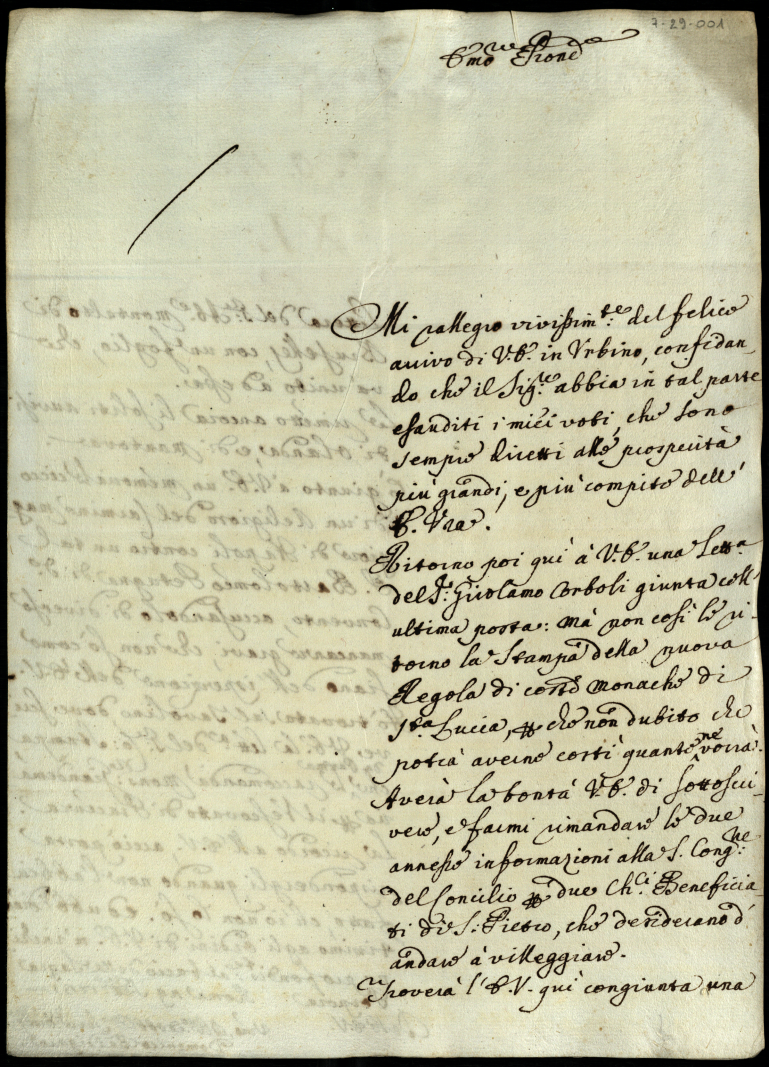 7-29-001
Emo e Rmo Prone
Mi rallegro vivissim.te del felice
arrivo di V.E. in Urbino, confidan-
do che il Sig.re abbia in tal parte
esauditi i miei voti, che sono
sempre diretti alle prosperità
più grandi, e più compite dell'
E. Vra.
Ritorno poi quì à V.E. una Lett.a
del S.r Girolamo Corboli giunta coll'
ultima posta: mà non così le ri-
torno la Stampa della nuova
Regola di coteste Monache di
S.ta Lucia, che non dubito che
potrà averne costì quante ne vorrà.
Averà la bontà V.E. di sottoscri-
vere, e farmi rimandare le due
annesse informazioni alla S. Cong.ne
del Concilio due Ch.ci Beneficia-
ti di S. Pietro, che desiderano d'
andare à villeggiare.
Troverà l'E.V. quì congiunta una